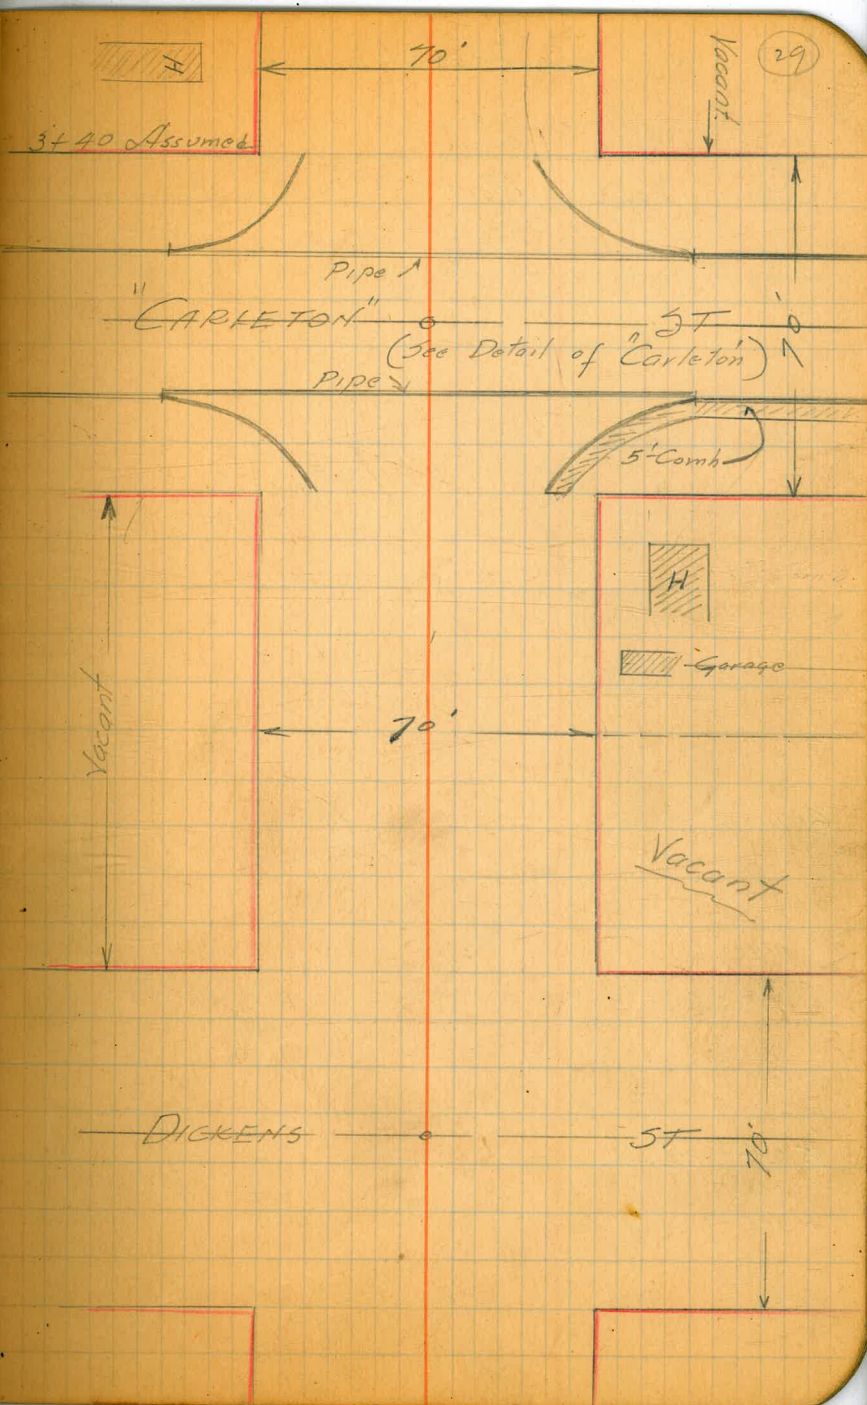 29
H
70'
Vacant
3+40 Assumed
Pipe
"CARLETON" ST
(See Detail of "Carleton")
70'
Pipe
5'-Comb
H
Garage
Vacant
70'
Vacant
DICKENS ST
70'